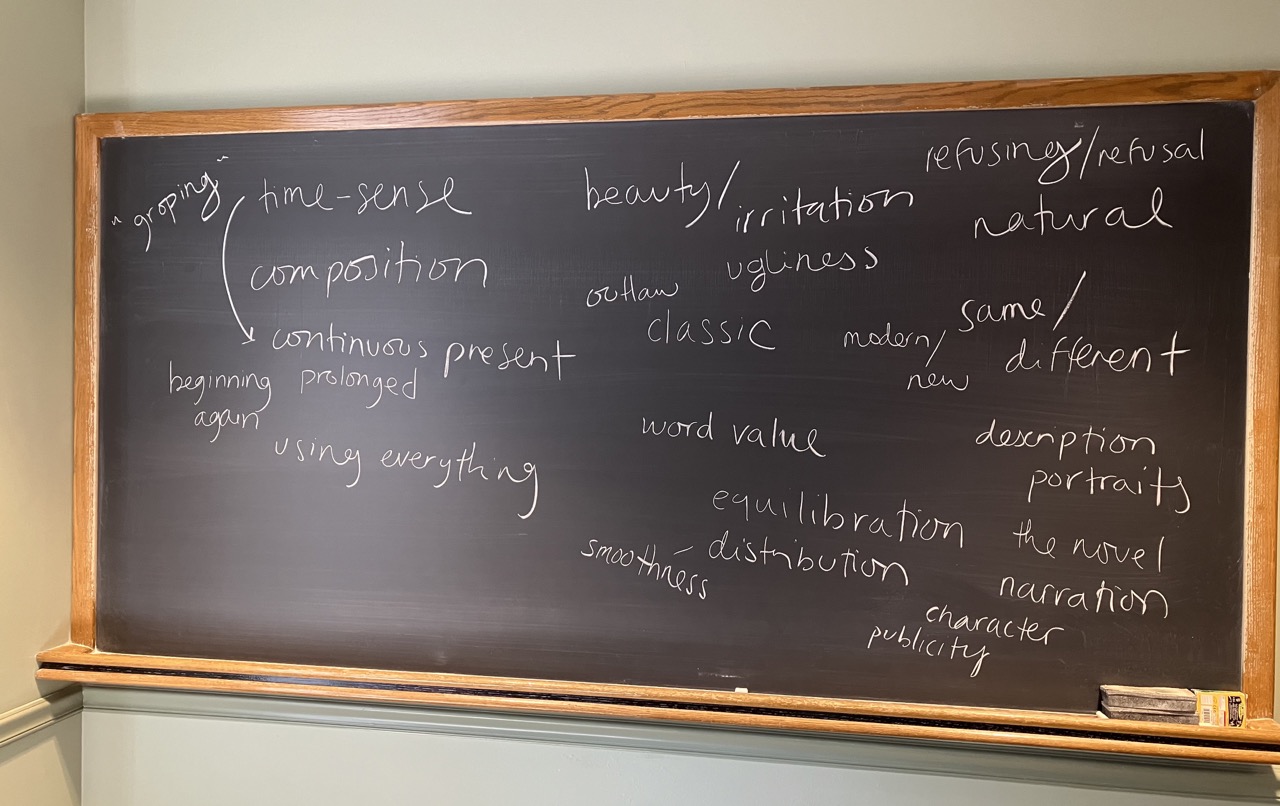 "groping"
time-sense
composition
continuous present
beginning prolonged
again
using everything
beauty/
irritation
ugliness
outlaw
classic
word value
equilibration
smoothness
distribution
refusing/refusal
natural
same/
different
modern/
new
description
portraits
the novel
narration
character
publicity